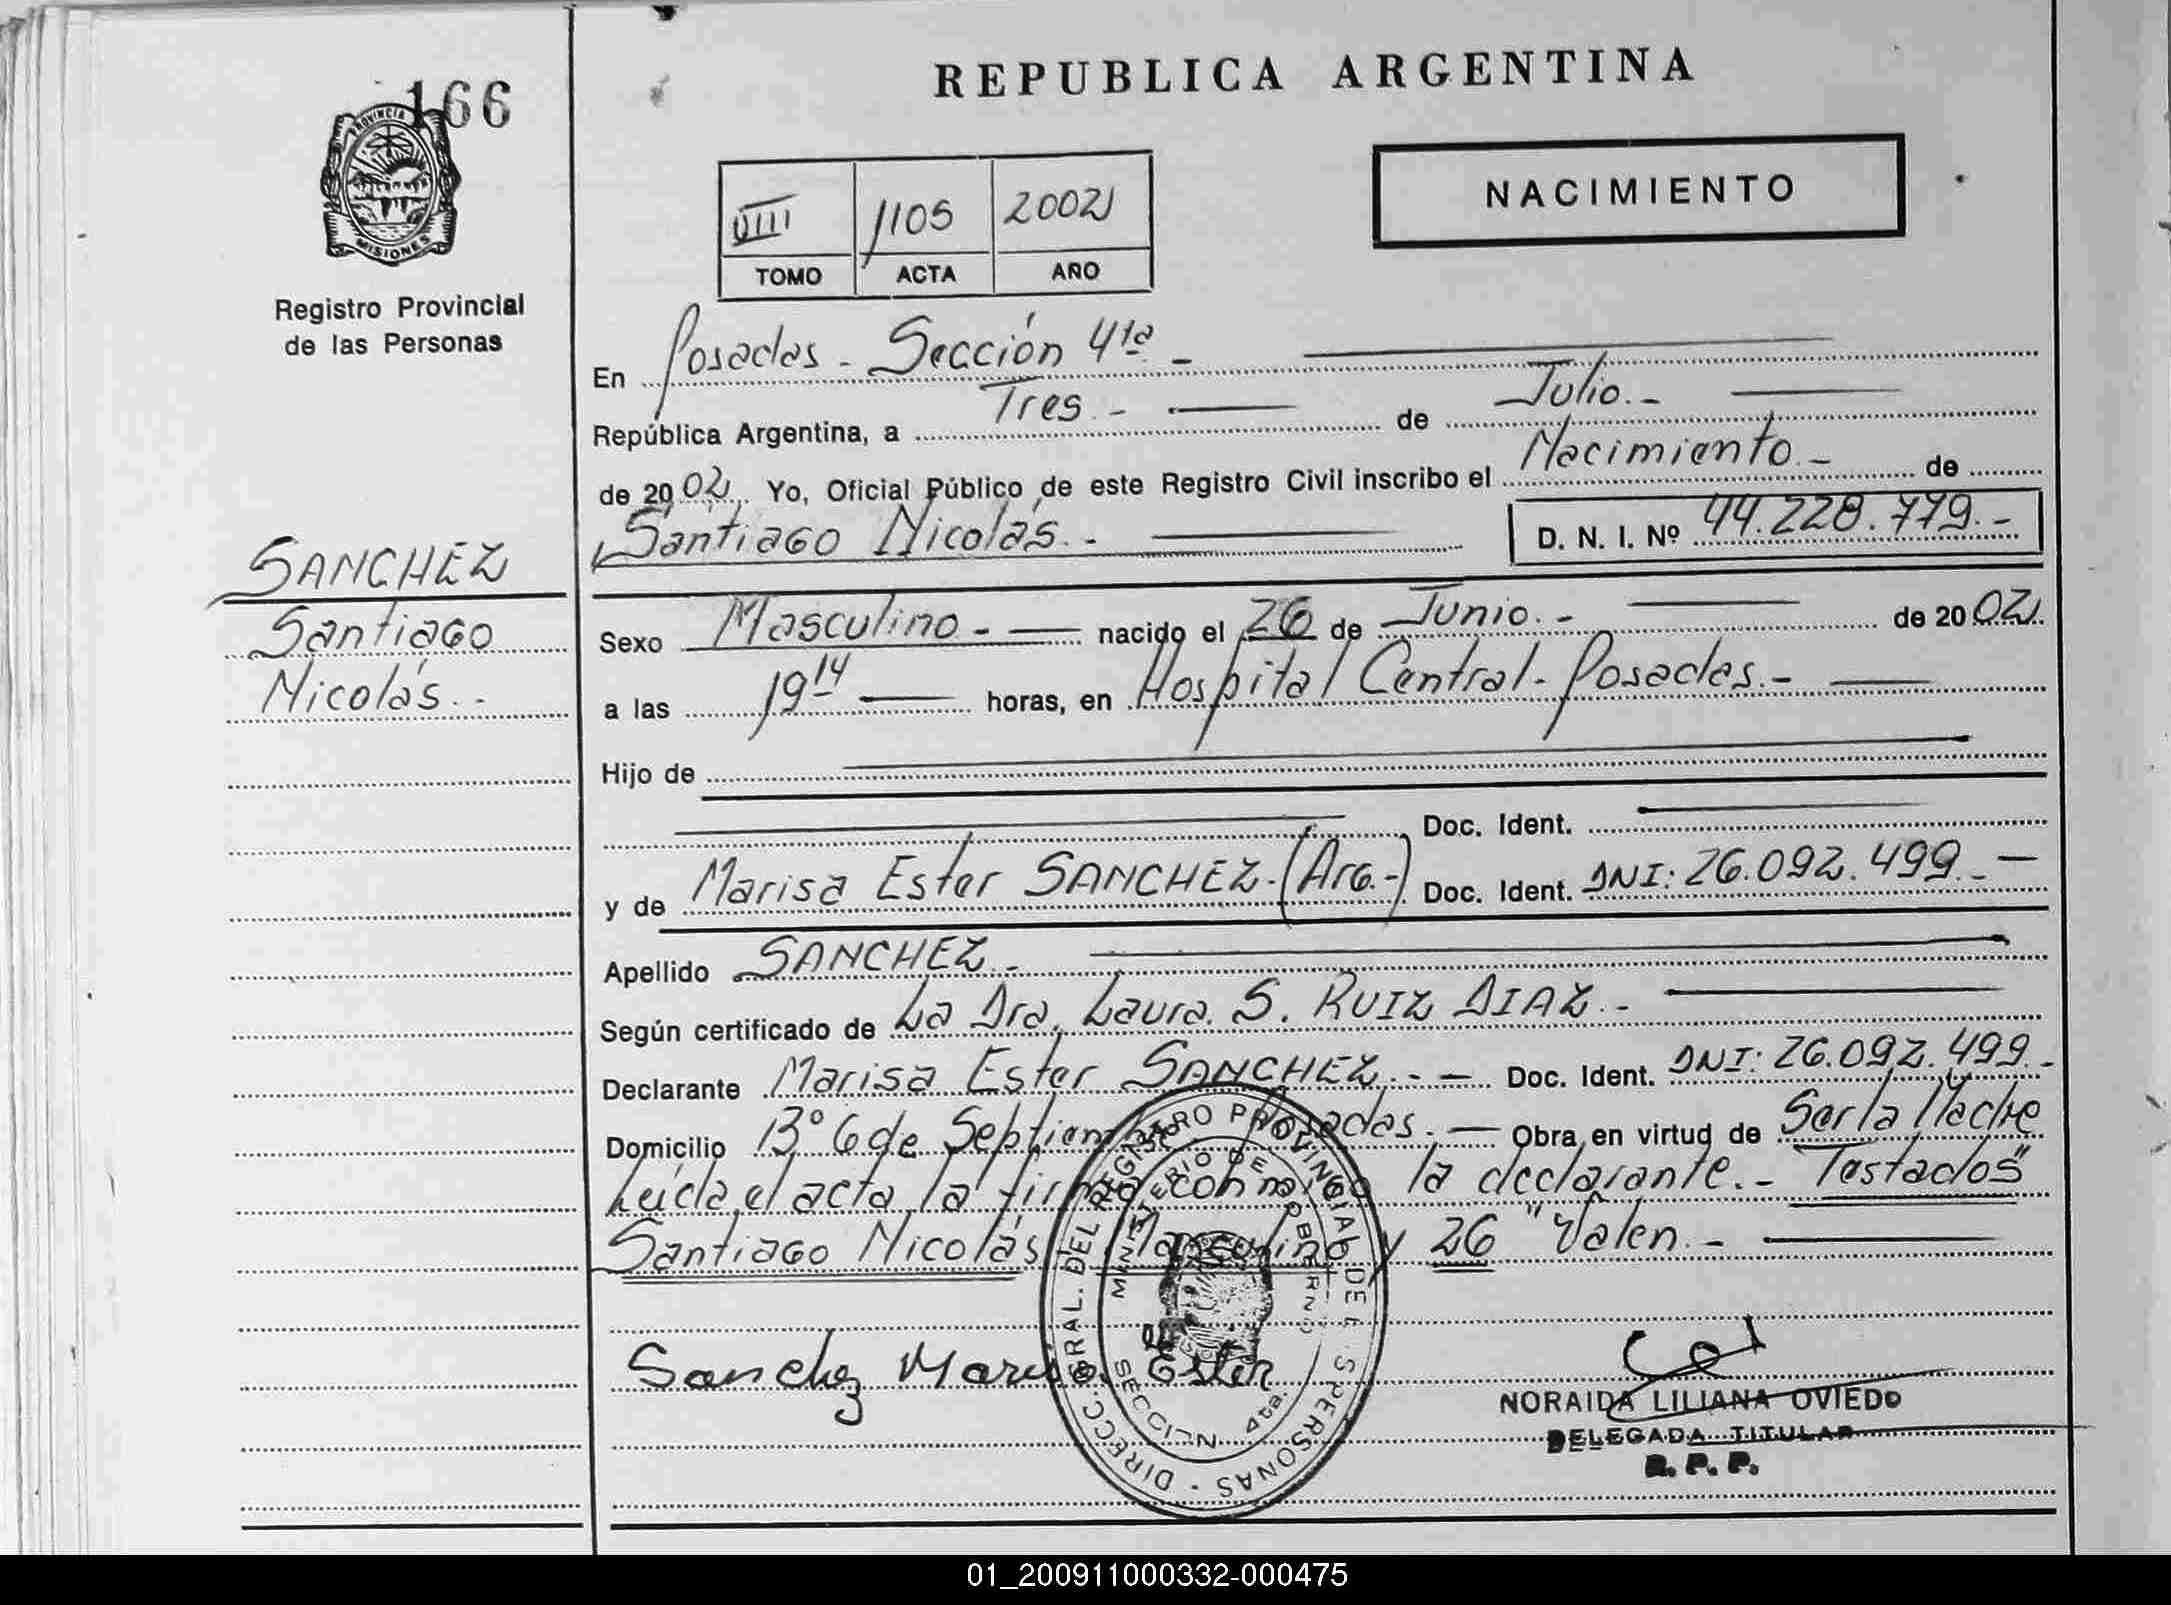 REPUBLICA ARGENTINA
166
PROVINCIA
MISIONES
Registro Provincial
de las Personas
NACIMIENTO
VIII 1105 2002
TOMO ACTA AÑO
En Posadas - Sección 4ta -
República Argentina, a Tres.- de Julio.-
de 2002. Yo, Oficial Público de este Registro Civil inscribo el Nacimiento.- de
Santiago Nicolás.- D. N. I. Nº 44.228.779.-
SANCHEZ
Santiago
Nicolás.-
Sexo Masculino.- nacido el 26 de Junio.- de 2002.
a las 19 14 horas, en Hospital Central-Posadas.-
Hijo de
Doc. Ident.
y de Marisa Ester SANCHEZ.-(Arg.-) Doc. Ident. DNI: 26.092.499.-
Apellido SANCHEZ.-
Según certificado de La Dra. Laura. S. RUIZ DIAZ.-
Declarante Marisa Ester SANCHEZ.- Doc. Ident. DNI: 26.092.499.-
Domicilio Bº 6 de Posadas.- Obra en virtud de Ser la Madre
Leída el acta la firma conmigo la declarante.- Testados"
Santiago Nicolás, Masculino y 26 "Valen.-
DIRECC. GRAL. DEL REGISTRO PROVINCIAL DE LAS PERSONAS
MINISTERIO DE GOBIERNO
SECCION 4ta.
Sanchez Marisa Ester
NORAIDA LILIANA OVIEDO
DELEGADA TITULAR
R. P. P.
01_200911000332-000475